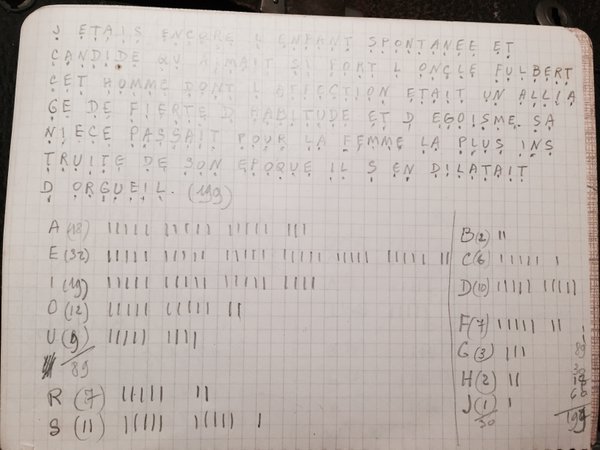 J ETAIS ENCORE L ENFANT SPONTANEE ET
CANDIDE QUI AIMAIT SI FORT L ONCLE FULBERT
CET HOMME DONT L AFFECTION ETAIT UN ALLIA
GE DE FIERTE D HABITUDE ET D EGOISME. SA
NIECE PASSAIT POUR LA FEMME LA PLUS INS
TRUITE DE SON EPOQUE IL S EN DILATAIT
D ORGUEIL. (199)
A (18)
E (32)
I (19)
O (12)
U (9)
89
R (7)
S (11)
B (2)
C (6)
D (10)
F (7)
G (3) 89
H (2)
J (1)
30 199